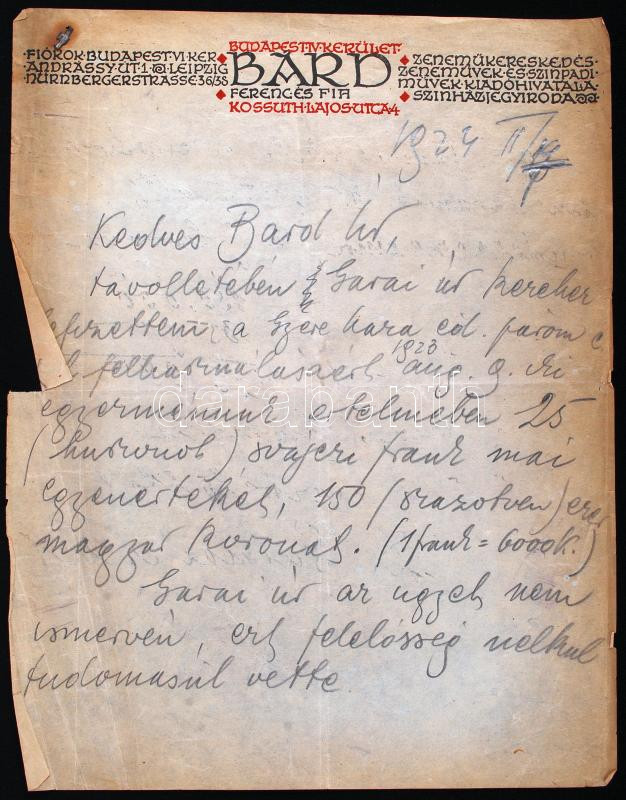 BUDAPEST·IV·KERÜLET·
BARD
FERENC ÉS FIA
KOSSUTH·LAJOS UTCA 4
·FIÓKOK·BUDAPEST·VI KER·
ANDRÁSSY·ÚT·1·LEIPZIG
NÜRNBERGERSTRASSE 36/38
·ZENEMŰKERESKEDÉS·
ZENEMŰVEK·ÉS SZINPADI
MŰVEK·KIADÓHIVATALA·
SZINHÁZJEGYIRODA
1924 II/
Kedves Bárd Úr,
távollétében Garai úr
a Szére kara ed. három
1923
aug. 9. ki
egyezményünk értelmében 25
(huszonöt) svájczi frank mai
egyenértékét, 150 (százötven) ezer
magyar koronát. (1 frank = 6000 k.)
Garai úr az ügyet nem
ismervén, ezt felelősség nélkül
tudomásul vette.
darabanth